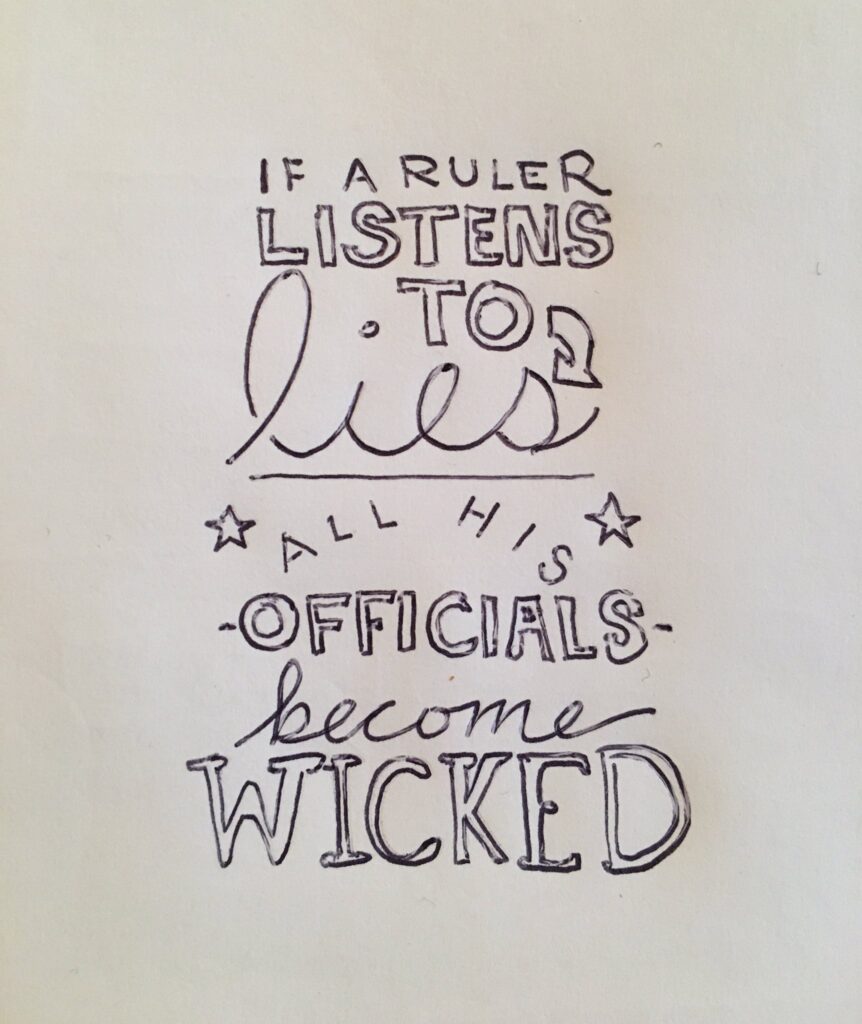 IF A RULER
LISTENS
TO
lies
ALL HIS
-OFFICIALS-
become
WICKED